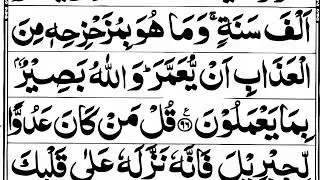 اَلۡفَ سَنَةٍۚ وَمَا هُوَ بِمُزَحۡزِحِهٖ مِنَ
الۡعَذَابِ اَنۡ يُّعَمَّرَؕ وَاللّٰهُ بَصِيۡرٌۢ
بِمَا يَعۡمَلُوۡنَ ﴿۹۶﴾ قُلۡ مَنۡ كَانَ عَدُوًّا
لِّجِبۡرِيۡلَ فَاِنَّهٗ نَزَّلَهٗ عَلٰى قَلۡبِكَ